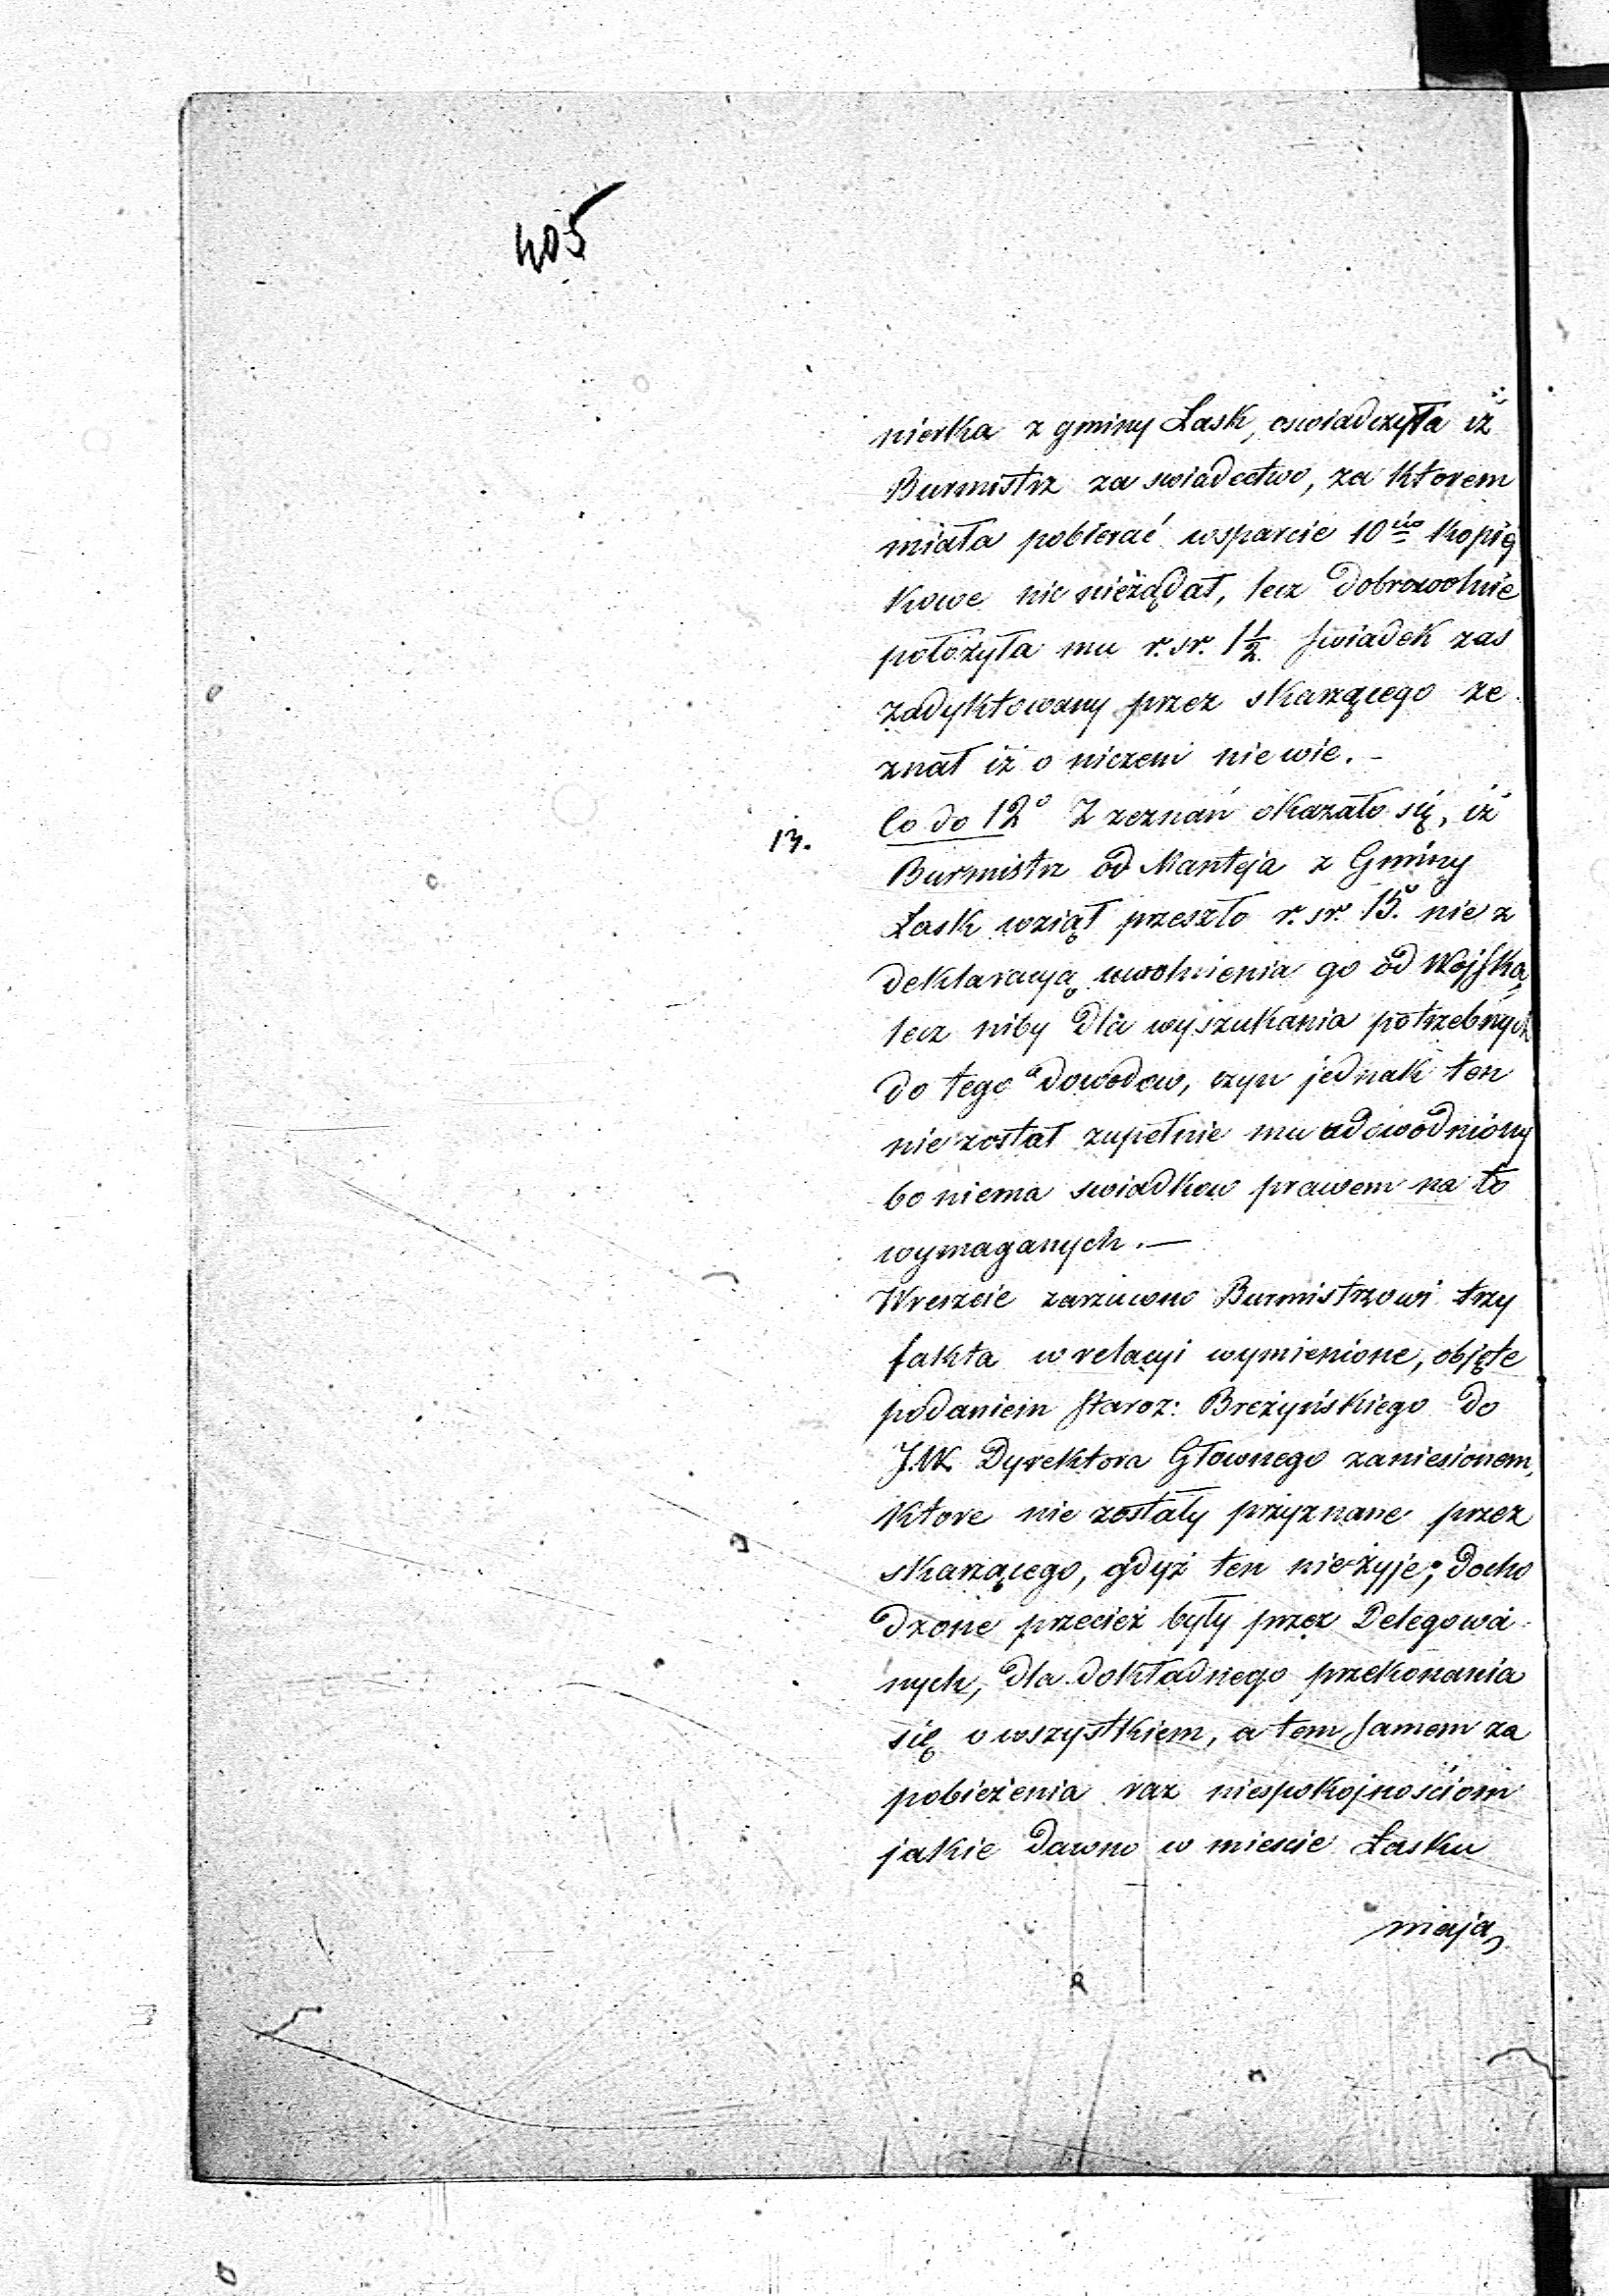 405
nierka z gminy Łask, oswiadczyła iż
Burmistrz za swiadectwo, za ktorem
miała pobierać wsparcie 10cio kopię
kowe nic nieżądał, lecz dobrowolnie
położyła mu r. sr. 1½. Swiadek zas
zadyktowany przez skarzącego ze
znał iż o niczem nie wie. –
13.
Co do 12o Z zeznań okazało się, iż
Burmistrz od Manteja z Gminy
Łask wziął przeszło r. sr. 15. nie z
deklaracyą uwolnienia go od Wojska,
lecz niby dla wyszukania potrzebnych
do tego dowodow, czyn jednak ten
nie został zupełnie mu udowodniony
bo niema swiadkow prawem na to
wymaganych. —
Wreszcie zarzucono Burmistrzowi trzy
fakta w relacyi wymienione, objęte
podaniem Staroz: Breżyńskiego do
J.W. Dyrektora Głownego zaniesionem,
ktore nie zostały przyznane przez
skarzącego, gdyż ten nie żyje; docho
dzone przecież były przez Delegowa
nych, dla dokładnego przekonania
się o wszystkiem, a tem samem za
pobieżenia raz niespokojnościom
jakie dawno w miescie Łasku
mają